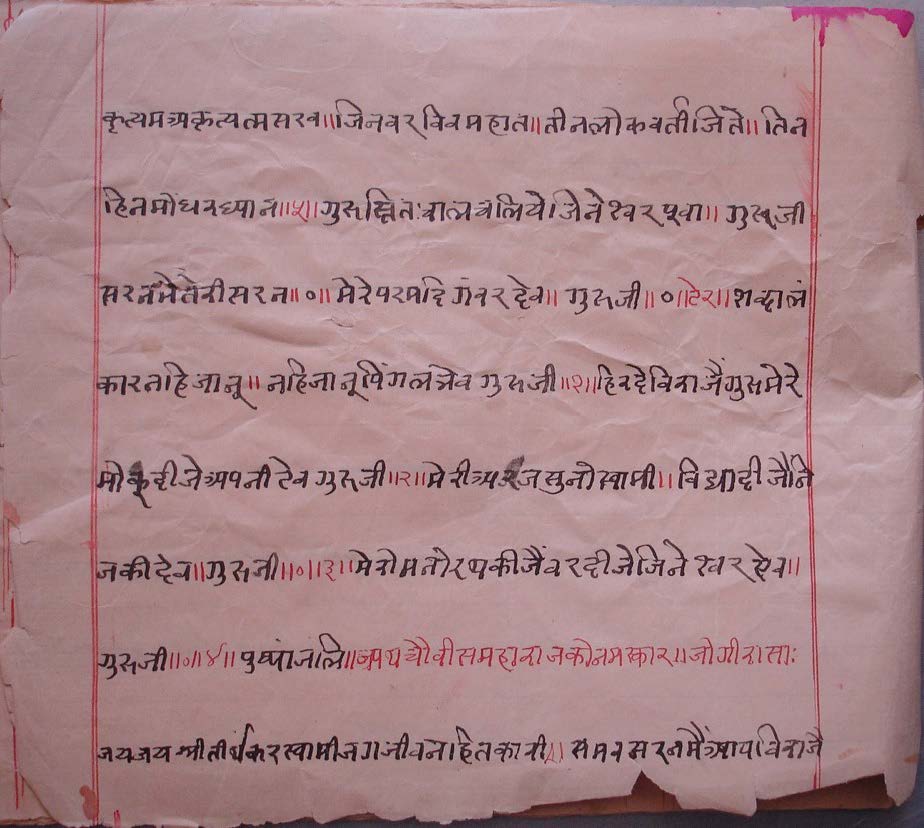 कृत्यमअकृत्यत्मसरव॥जिनवरविवमहात॥तीनलोकवर्तीजिते॥तिन
हिनमोंधरध्यान॥५॥गुरु चालचलिये जिनेश्वरपूवा॥ गुरूजी
सरनमैतेरीसरन॥०॥मेरेपरमदिगंवरदेव॥ गुरुजी॥०॥टेर॥शव्दालं
कारनाहिजानू॥ नहिजानूपिंगलभेव गुरुजी॥१॥हिरदेविराजैंगुरुमेरे
मोकूदीजेअपनीटेव गुरुजी॥२॥मेरीअरजसुनोस्वामी॥ विद्यादीजैनि
जकीदेव॥गुरुजी॥०॥३॥मेरोमनोरथकीजैंवरदीजेजिनेश्वरदेव॥
गुरुजी॥०॥४॥ पुष्पांजलि॥अथचौवीसमहाराजकोनमस्कार॥जोगीरासाः
जयजयश्रीतीर्थंकरस्वामीजगजीवनहितकारी॥ समवसरनमैंआपविराजै